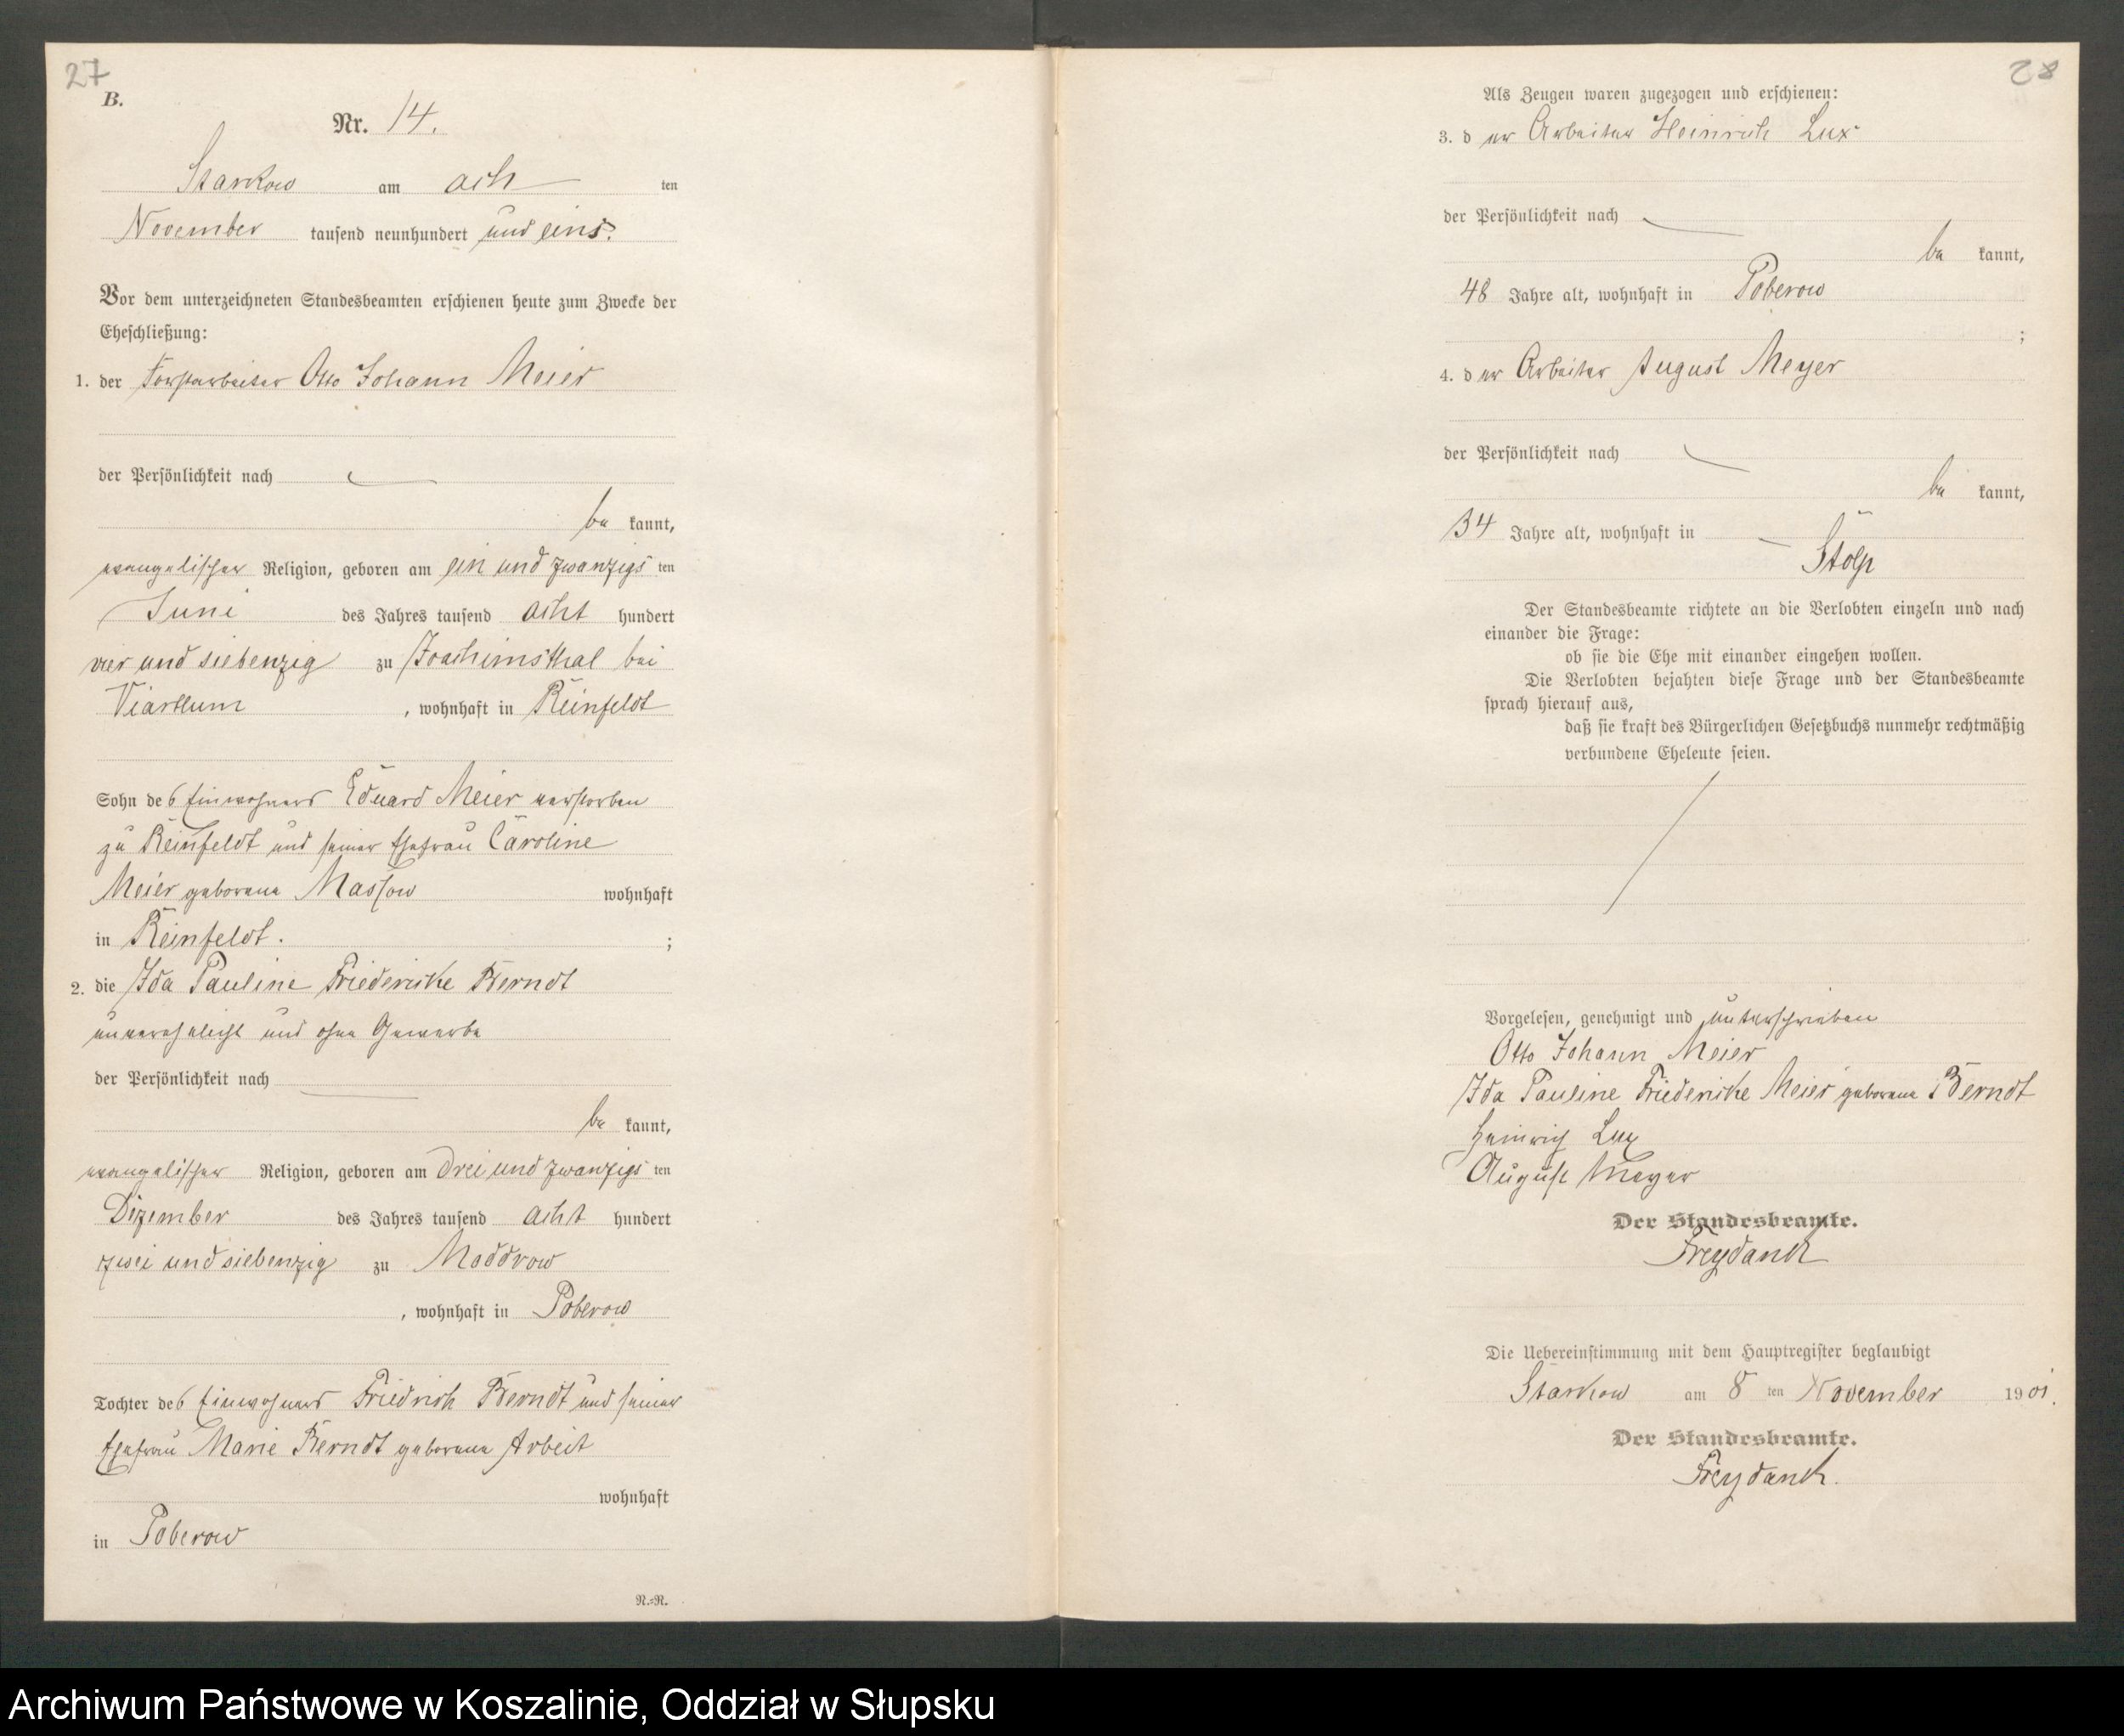 27
B.
Nr. 14.
Starkow am ach ten
November tausend neunhundert und eins.
Vor dem unterzeichneten Standesbeamten erschienen heute zum Zwecke der
Eheschließung:
1. der Forstarbeiter Otto Johann Meier
der Persönlichkeit nach
be kannt,
evangelischer Religion, geboren am ein und zwanzigs ten
Juni des Jahres tausend acht hundert
vier und siebenzig zu Joachimsthal bei
Viartlum , wohnhaft in Reinfeldt
Sohn des Einwohners Eduard Meier verstorben
zu Reinfeldt und seiner Ehefrau Caroline
Meier geborene Massow wohnhaft
in Reinfeldt. ;
2. die Ida Pauline Friedericke Berndt
unverehelicht und ohne Gewerbe
der Persönlichkeit nach
be kannt,
evangelischer Religion, geboren am drei und zwanzigs ten
Dezember des Jahres tausend acht hundert
zwei und siebenzig zu Moddrow
, wohnhaft in Poberow
Tochter des Einwohners Friedrich Berndt und seiner
Ehefrau Marie Berndt geborene Arbeit
wohnhaft
in Poberow
N.=N.
28
Als Zeugen waren zugezogen und erschienen:
3. d er Arbeiter Heinrich Lux
der Persönlichkeit nach
be kannt,
48 Jahre alt, wohnhaft in Poberow
;
4. d er Arbeiter August Meyer
der Persönlichkeit nach
be kannt,
34 Jahre alt, wohnhaft in
Stolp
Der Standesbeamte richtete an die Verlobten einzeln und nach
einander die Frage:
ob sie die Ehe mit einander eingehen wollen.
Die Verlobten bejahten diese Frage und der Standesbeamte
sprach hierauf aus,
daß sie kraft des Bürgerlichen Gesetzbuchs nunmehr rechtmäßig
verbundene Eheleute seien.
Vorgelesen, genehmigt und unterschrieben
Otto Johann Meier
Ida Pauline Friedericke Meier geborene Berndt
Heinrich Lux
August Meyer
Der Standesbeamte.
Freydanck
Die Uebereinstimmung mit dem Hauptregister beglaubigt
Starkow am 8 ten November 19 01.
Der Standesbeamte.
Freydanck.
Archiwum Państwowe w Koszalinie, Oddział w Słupsku